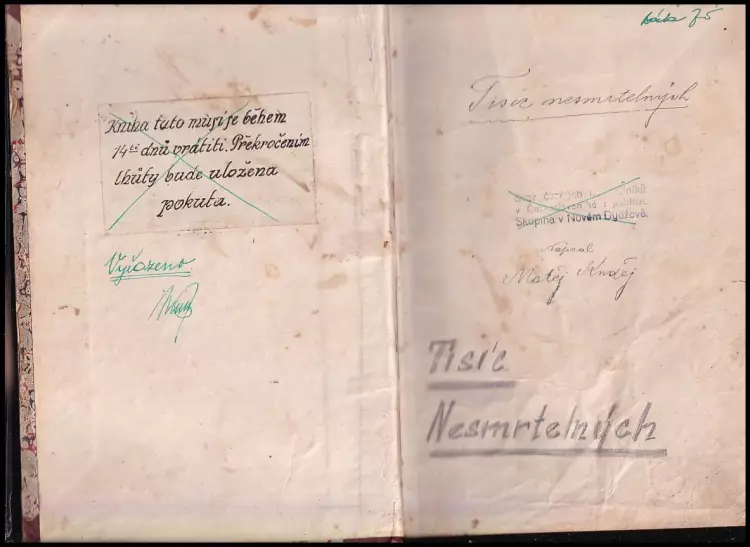 Kniha tato musí se během
14ti dnů vrátiti. Překročením
lhůty bude uložena
pokuta.
Vyřazeno
75
Tisíc nesmrtelných
Svaz českých
v
Skupina v Novém Bydžově.
Napsal
Matěj
Tisíc
Nesmrtelných